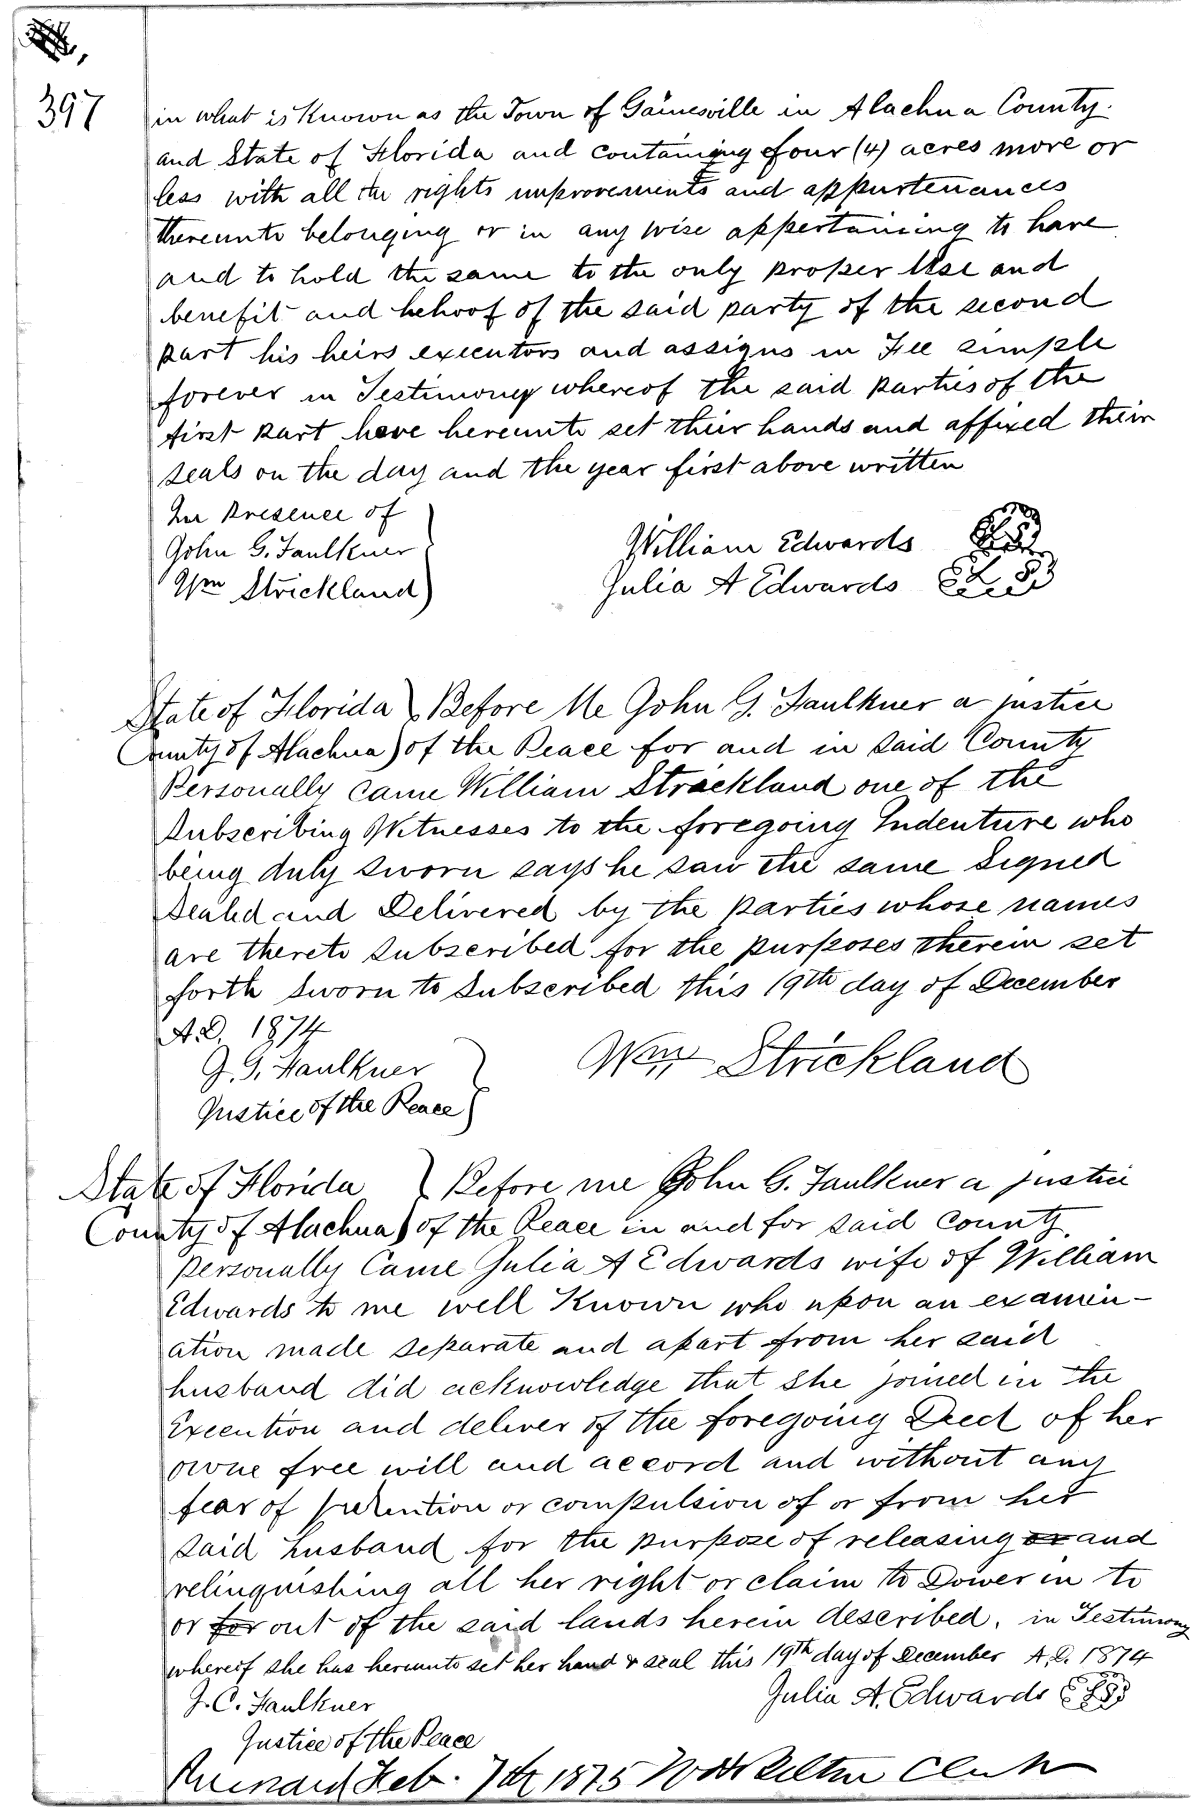 397
in what is Known as the Town of Gainesville in Alachua County.
and State of Florida and containing four (4) acres more or
less with all the rights improvements and appurtenances
thereunto belonging or in any wise appertaining to have
and to hold the same to the only proper Use and
benefit and behoof of the said party of the second
part his heirs executors and assigns in Fee simple
forever in Testimony whereof the said parties of the
first part have hereunto set their hands and affixed their
seals on the day and the year first above written
In Presence of
John G. Faulkner
Wm Strickland
William Edwards LS
Julia A Edwards LS
State of Florida } Before Me John G. Faulkner a justice
County of Alachua } of the Peace for and in said County
Personally came William Strickland one of the
Subscribing Witnesses to the foregoing Indenture who
being duly sworn says he saw the same Signed
Sealed and Delivered by the parties whose names
are thereto Subscribed for the purposes therein set
forth Sworn to Subscribed this 19th day of December
A.D. 1874
J. G. Faulkner
Justice of the Peace
Wm Strickland
State of Florida } Before me John G. Faulkner a justice
County of Alachua } of the Peace in and for said County
personally Came Julia A Edwards wife of William
Edwards to me well Known who upon an examin-
ation made separate and apart from her said
husband did acknowledge that she joined in the
Execution and deliver of the foregoing Deed of her
owne free will and accord and without any
fear of or compulsion of or from her
said husband for the purpose of releasing or and
relinquishing all her right or claim to Dower in to
or for out of the said lands herein described. in Testimony
whereof she has hereunto set her hand & seal this 19th day of December A.D. 1874
J. C. Faulkner
Justice of the Peace
Julia A. Edwards LS
Feb. 7th 1875 Clerk